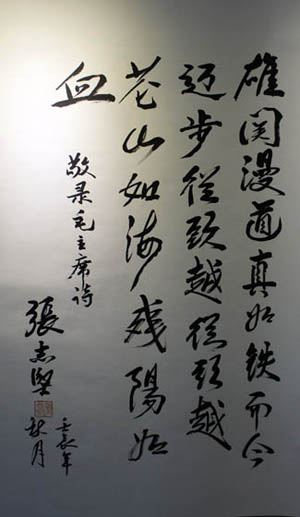 雄関漫道真如铁而今
迈步從頭越從頭越
苍山如海残陽如
血
敬录毛主席诗
張志坚
壬辰年
秋月